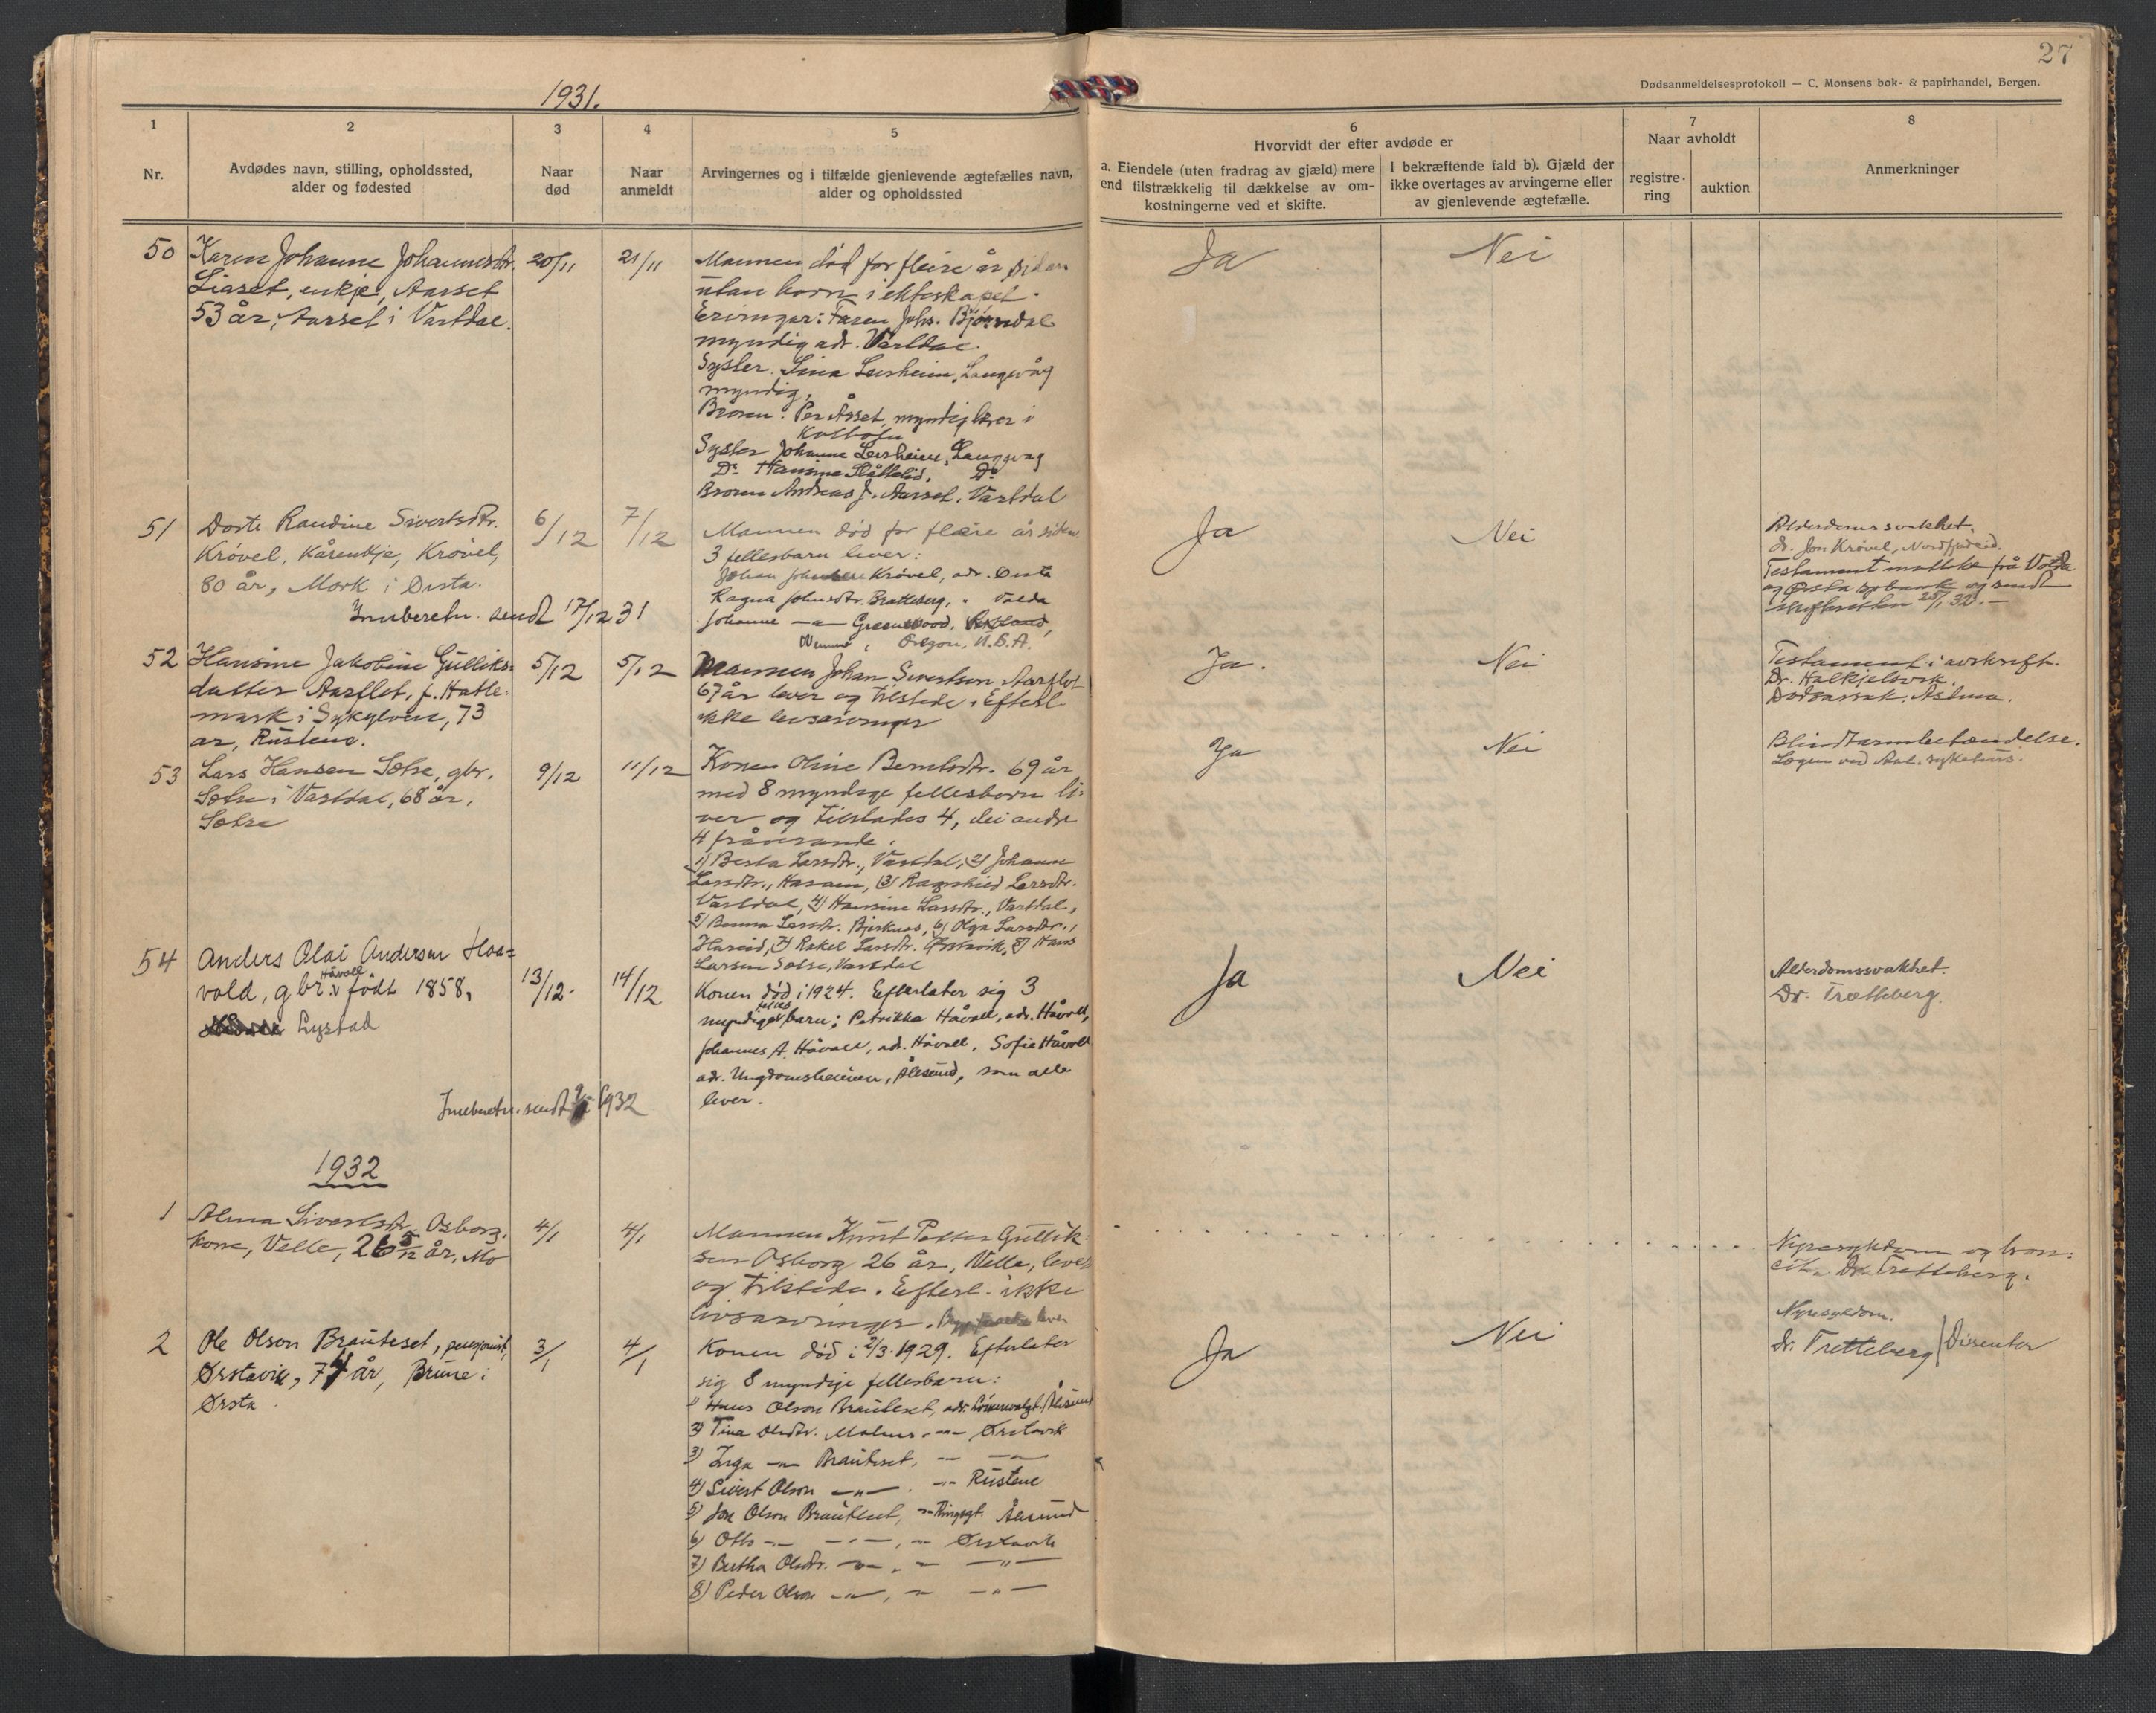 27
Dødsanmeldelsesprotokoll — C. Monsens bok- & papirhandel, Bergen.
1931.
1
Nr.
2
Avdødes navn, stilling, opholdssted,
alder og fødested
3
Naar
død
4
Naar
anmeldt
5
Arvingernes og i tilfælde gjenlevende ægtefælles navn,
alder og opholdssted
6
Hvorvidt der efter avdøde er
a. Eiendele (uten fradrag av gjæld) mere
end tilstrækkelig til dækkelse av om-
kostningerne ved et skifte.
I bekræftende fald b). Gjæld der
ikke overtages av arvingerne eller
av gjenlevende ægtefælle.
7
Naar avholdt
registre-
ring
auktion
8
Anmerkninger
50
Karen Johanne Johannesdtr.
Liaset, enkje, Aarset
53 år, Aarset i Vartdal.
20/11
21/11
Mannen død for fleire år sidan
utan born i ekteskapet.
Ervingar: Faren Johs. Bjørndal
myndig adr. Vartdal.
Syster. Lina Leirheim, Langevåg
myndig,
Broren: Per Åsset, myndig lærer i
Kolbofn
Syster Johanne Leirheim, Langevag
Do Hansine Slåttelid, Do
Broren Andreas J. Aarset, Vartdal
Ja
Nei
51
Dorte Raudine Sivertsdtr.
Krøvel, kårenkje, Krøvel,
80 år, Mork i Ørsta.
Innberetn. sendt 17/12 31
6/12
7/12
Mannen død for flere år siden
3 fellesbarn lever:
Johan Johnsen Krøvel, adr. Ørsta
Ragna Johnsdtr. Bratteberg, " Volda
Johanne —"— Greenwood,
Oregon, U.S.A.
Ja
Nei
Alderdomssvakhet.
dr. Jon Krøvel, Nordfjordeid.
Testament mottoke frå Volda
og Ørsta spbank og sendt
skifteretten 25/1 32. —
52
Hansine Jakobine Gulliks-
datter Aarflot, f. Hatle-
mark i Sykylven, 73
år, Rustene.
5/12
5/12
Mannen Johan Sivertsen Aarflot
67 år lever og tilstede. Efterl.
ikke livsarvinger
Ja.
Nei
Testament i avskrift.
Dr. Kalkjelsvik.
Dødsårsak. Astma.
53
Lars Hansen Sætre, gbr.
Sætre i Vartdal, 68 år,
Sætre
9/12
11/12
Konen Oline Berntsdtr. 69 år
med 8 myndige fellesborn li-
ver og tilstades 4, dei andre
4 fråverande.
1) Berta Larsdtr., Vartdal, 2) Johanne
Larsdtr., Hasam, 3) Ragnhild Larsdtr.
Vartdal, 4) Hansine Larsdtr., Vartdal,
5) Benna Larsdtr. Bjerknes, 6) Olga Larsdtr.,
Hareid, 7) Rakel Larsdtr. Ørstavik, 8) Hans
Larsen Sætre, Vartdal
Ja
Nei
Blindtarmbetændelse.
Lægen ved Aal. sykehus.
54
Anders Olai Andersen Hoa-
vold, gbr. Håvoll født 1858,
Lystad
Innberetn. sendt 1932
13/12
14/12
Konen død i 1924. Efterlater sig 3
myndige felles barn; Petrikka Håvoll, adr. Håvoll,
Johannes A. Håvoll, adr. Håvoll, Sofie Håvoll
adr. Ungdomsheimen, Ålesund, som alle
lever.
Ja
Nei
Alderdomssvakhet.
Dr. Trætteberg.
1932
1
Alma Sivertsdtr. Osborg,
kone, Velle, 26 5/12 år, Mo
4/1
4/1
Mannen Knut Petter Gullik-
sen Osborg 26 år, Velle, lever
og tilstede. Efterl. ikke
livsarvinger. lever
Nyresykdom og
Dr. Tretteberg.
2
Ole Olson Brauteset, pensjonist,
Ørstavik, 74 år, Brune i
Ørsta
3/1
4/1
Konen død i 2/3 1929. Efterlater
sig 8 myndige fellesbarn:
1) Hans Olson Brauteset, adr. Ålesund
2) Tina Olsdtr. Malnes —"— Ørstavik
3) Inga —"— Brauteset, —"— —"—
4) Sivert Olson —"— . —"— Rustene
5) Jon Olson Brauteset, —"— Ålesund
6) Otto —"— —"—, —"— Ørstavik
7) Bertha Olsdtr. —"— , —"— —"—
8) Peder Olson —"—, —"— —"—
Ja
Nei
Nyresykdom.
Dr. Tretteberg